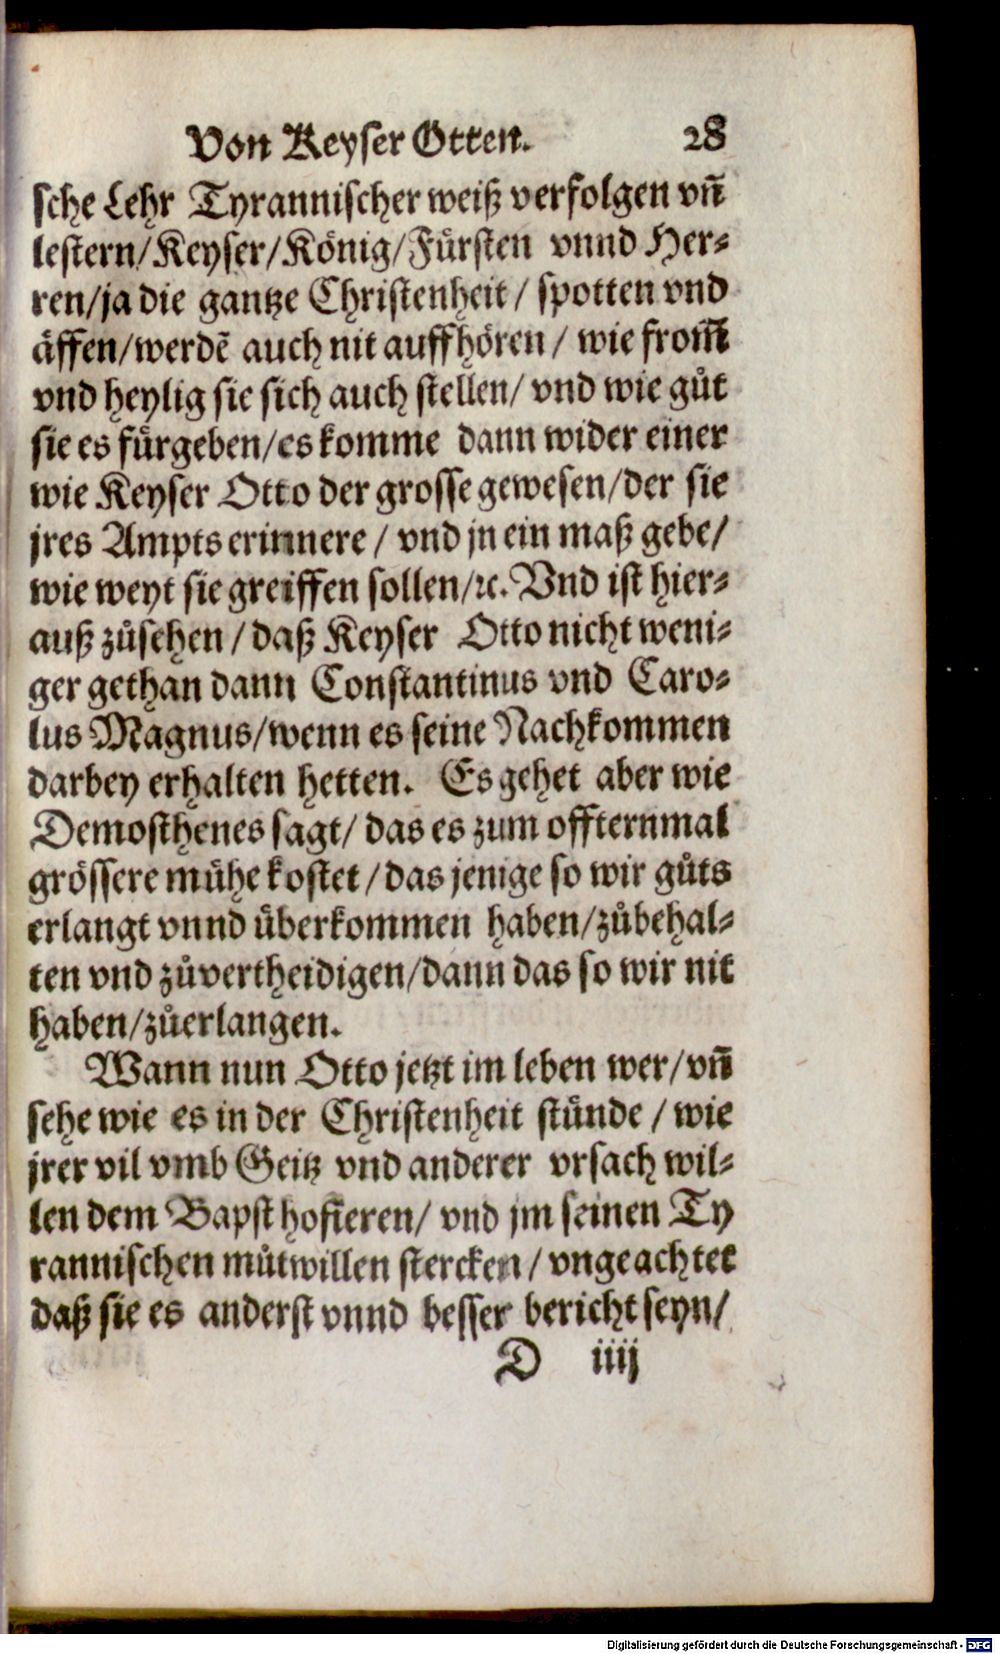 Von Keyser Otten. 28
sche Lehr Tyrannischer weiß verfolgen vñ
lestern/Keyser/König/Fürsten vnnd Her⸗
ren/ja die gantze Christenheit/ spotten vnd
äffen/werdē auch nit auffhören/ wie from̃
vnd heylig sie sich auch stellen/ vnd wie gůt
sie es fürgeben/es komme dann wider einer
wie Keyser Otto der grosse gewesen/der sie
jres Ampts erinnere/ vnd jn ein maß gebe/
wie weyt sie greiffen sollen/ꝛc. Vnd ist hier⸗
auß zůsehen/ daß Keyser Otto nicht weni⸗
ger gethan dann Constantinus vnd Caro⸗
lus Magnus/wenn es seine Nachkommen
darbey erhalten hetten. Es gehet aber wie
Demosthenes sagt/ das es zum offternmal
grössere mühe kostet/das jenige so wir gůts
erlangt vnnd überkommen haben/zůbehal⸗
ten vnd zůvertheidigen/dann das so wir nit
haben/zůerlangen.
Wann nun Otto jetzt im leben wer/vñ
sehe wie es in der Christenheit stünde/ wie
jrer vil vmb Geitz vnd anderer vrsach wil⸗
len dem Bapst hofieren/ vnd jm seinen Ty
rannischen můtwillen stercken/ vngeachtet
daß sie es anderst vnnd besser bericht seyn/
D iiij
Digitalisierung gefördert durch die Deutsche Forschungsgemeinschaft - DFG